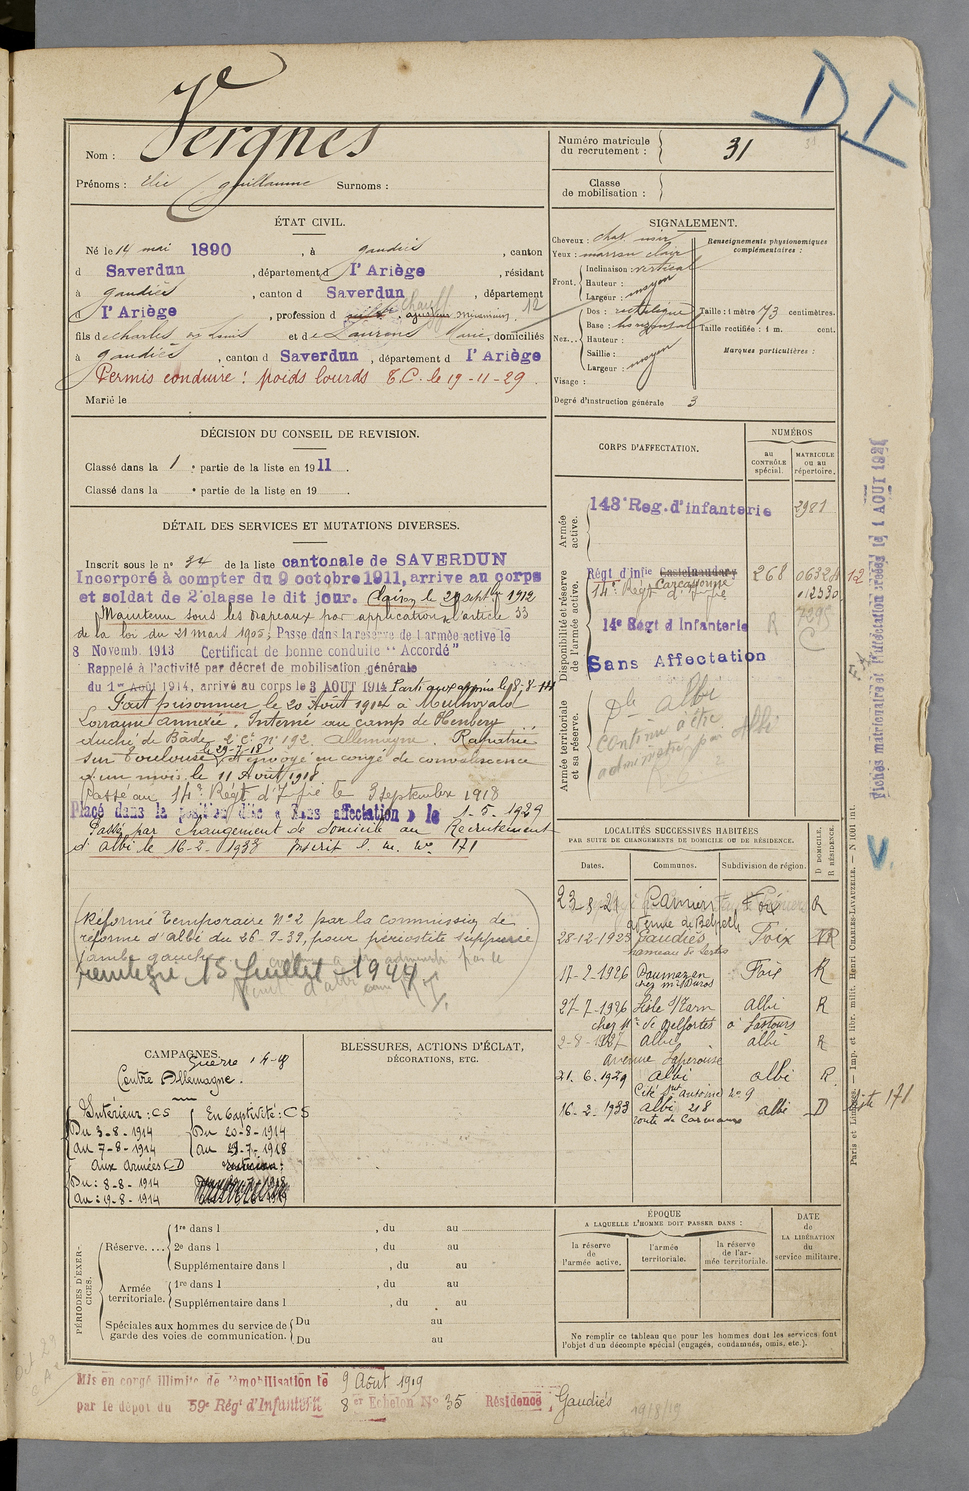 D.I
Nom : Vergnes
Prénoms : Elie Guillaume Surnoms :
Numéro matricule
du recrutement : 31
Classe
de mobilisation :
ÉTAT CIVIL.
Né le 14 mai 1890, à Gaudiés, canton
d Saverdun, département d l'Ariège, résidant
à Gaudiés, canton d Saverdun, département
d l'Ariège, profession de
fils de Charles et de Laurens Marie, domiciliés
à Gaudiés, canton d Saverdun, département d l'Ariège
Permis conduire : poids lourds T.C. le 19-11-29.
Marié le
SIGNALEMENT.
Cheveux : chat. noir
Yeux : marron clair
Front. Inclinaison : vertical
Hauteur : moyen
Largeur :
Nez... Dos : rectiligne
Base : horizontal
Hauteur :
Saillie :
Largeur : moyen
Visage :
Degré d'instruction générale 3
Renseignements physionomiques
complémentaires :
Taille : 1 mètre 73 centimètres.
Taille rectifiée : 1 m. cent.
Marques particulières :
DÉCISION DU CONSEIL DE REVISION.
Classé dans la 1e partie de la liste en 1911.
Classé dans la e partie de la liste en 19 .
DÉTAIL DES SERVICES ET MUTATIONS DIVERSES.
Inscrit sous le n° 34 de la liste cantonale de SAVERDUN
Incorporé à compter du 9 octobre 1911, arrive au corps
et soldat de 2e classe le dit jour. Clairon le 29 1912
Maintenu sous les drapeaux par application de l'article 33
de la loi du 21 mars 1905; Passe dans la réserve de l'armée active le
8 Novemb. 1913 Certificat de bonne conduite "Accordé"
Rappelé à l'activité par décret de mobilisation générale
du 1er Août 1914, arrivé au corps le 3 AOUT 1914 Parti aux armées le 8-8-14
Fait prisonnier le 20 Août 1914 à
Lorraine annexée. Interné au camp de
duché de Bade 2e Cie N° 192. Allemagne. Rapatrié
sur Toulouse le 29-7-18 Renvoyé en congé de convalescence
d'un mois le 11 Août 1918
Passé au 14e Régt d'Inf ie le 3 Septembre 1918
Placé dans la position dite « Sans affectation » le 1-5-1929
Passé par changement de domicile au Recrutement
d'Albi le 16-2-1933 inscrit l. m. No 171
(Réformé temporaire N°2 par la commission de
réforme d'Albi du 26-9-39, pour périostite suppurée
jambe gauche
15 Juillet 1944
CORPS D'AFFECTATION.
NUMÉROS
au
CONTRÔLE
spécial.
MATRICULE
ou au
répertoire.
Armée
active.
143e Reg. d'infanterie 2981
Disponibilité et réserve
de l'armée active.
Régt d'infie Castelnaudary Carcassonne 268
14e Régt d'Inf ie
14e Régt d Infanterie R 7295
Sans Affectation C
Armée territoriale
et sa réserve.
Ple Albi
continue à être
administré par Albi
Fiches matriculaire et d'affectation créées le 1 AOUT
LOCALITÉS SUCCESSIVES HABITÉES
PAR SUITE DE CHANGEMENTS DE DOMICILE OU DE RÉSIDENCE.
Dates. Communes. Subdivision de région. D DOMICILE. R RÉSIDENCE.
Pamiers Foix R
28-12-1923 Gaudiés, Foix R
17-2-1926 Foix R
27-7-1926 Lisle s/Tarn Albi R
2-8-1927 Albi, Albi R
avenue Lapérouse
21.6.1929 Albi Albi R
Cité St Antoine No 9
16-2-1933 Albi 218 Albi D liste 171
route de Carmaux
CAMPAGNES.
Guerre 14-18
Contre Allemagne.
Intérieur : CS
Du 3-8-1914
au 7-8-1914
En Captivité : CS
Du 20-8-1914
au 29-7-1918
Aux Armées CD
Du : 8-8-1914
au : 19-8-1914
BLESSURES, ACTIONS D'ÉCLAT,
DÉCORATIONS, ETC.
PÉRIODES D'EXER-
CICES.
Réserve.... 1re dans l , du au
2e dans l , du au
Supplémentaire dans l , du au
Armée
territoriale. 1re dans l , du au
Supplémentaire dans l , du au
Spéciales aux hommes du service de
garde des voies de communication. Du au
Du au
ÉPOQUE
A LAQUELLE L'HOMME DOIT PASSER DANS :
la réserve
de
l'armée active.
l'armée
territoriale.
la réserve
de l'ar-
mée territoriale.
DATE
de
LA LIBÉRATION
du
service militaire.
Ne remplir ce tableau que pour les hommes dont les services font
l'objet d'un décompte spécial (engagés, condamnés, omis, etc.).
Paris et Limoges. — Imp. et libr. milit. Henri CHARLES-LAVAUZELLE. — N° 1091 int.
Mis en congé illimité de démobilisation le 9 Août 1919
par le dépot du 59e Régt d'Infanterie 8er Echelon No 35 Résidence Gaudiés
19/8/19